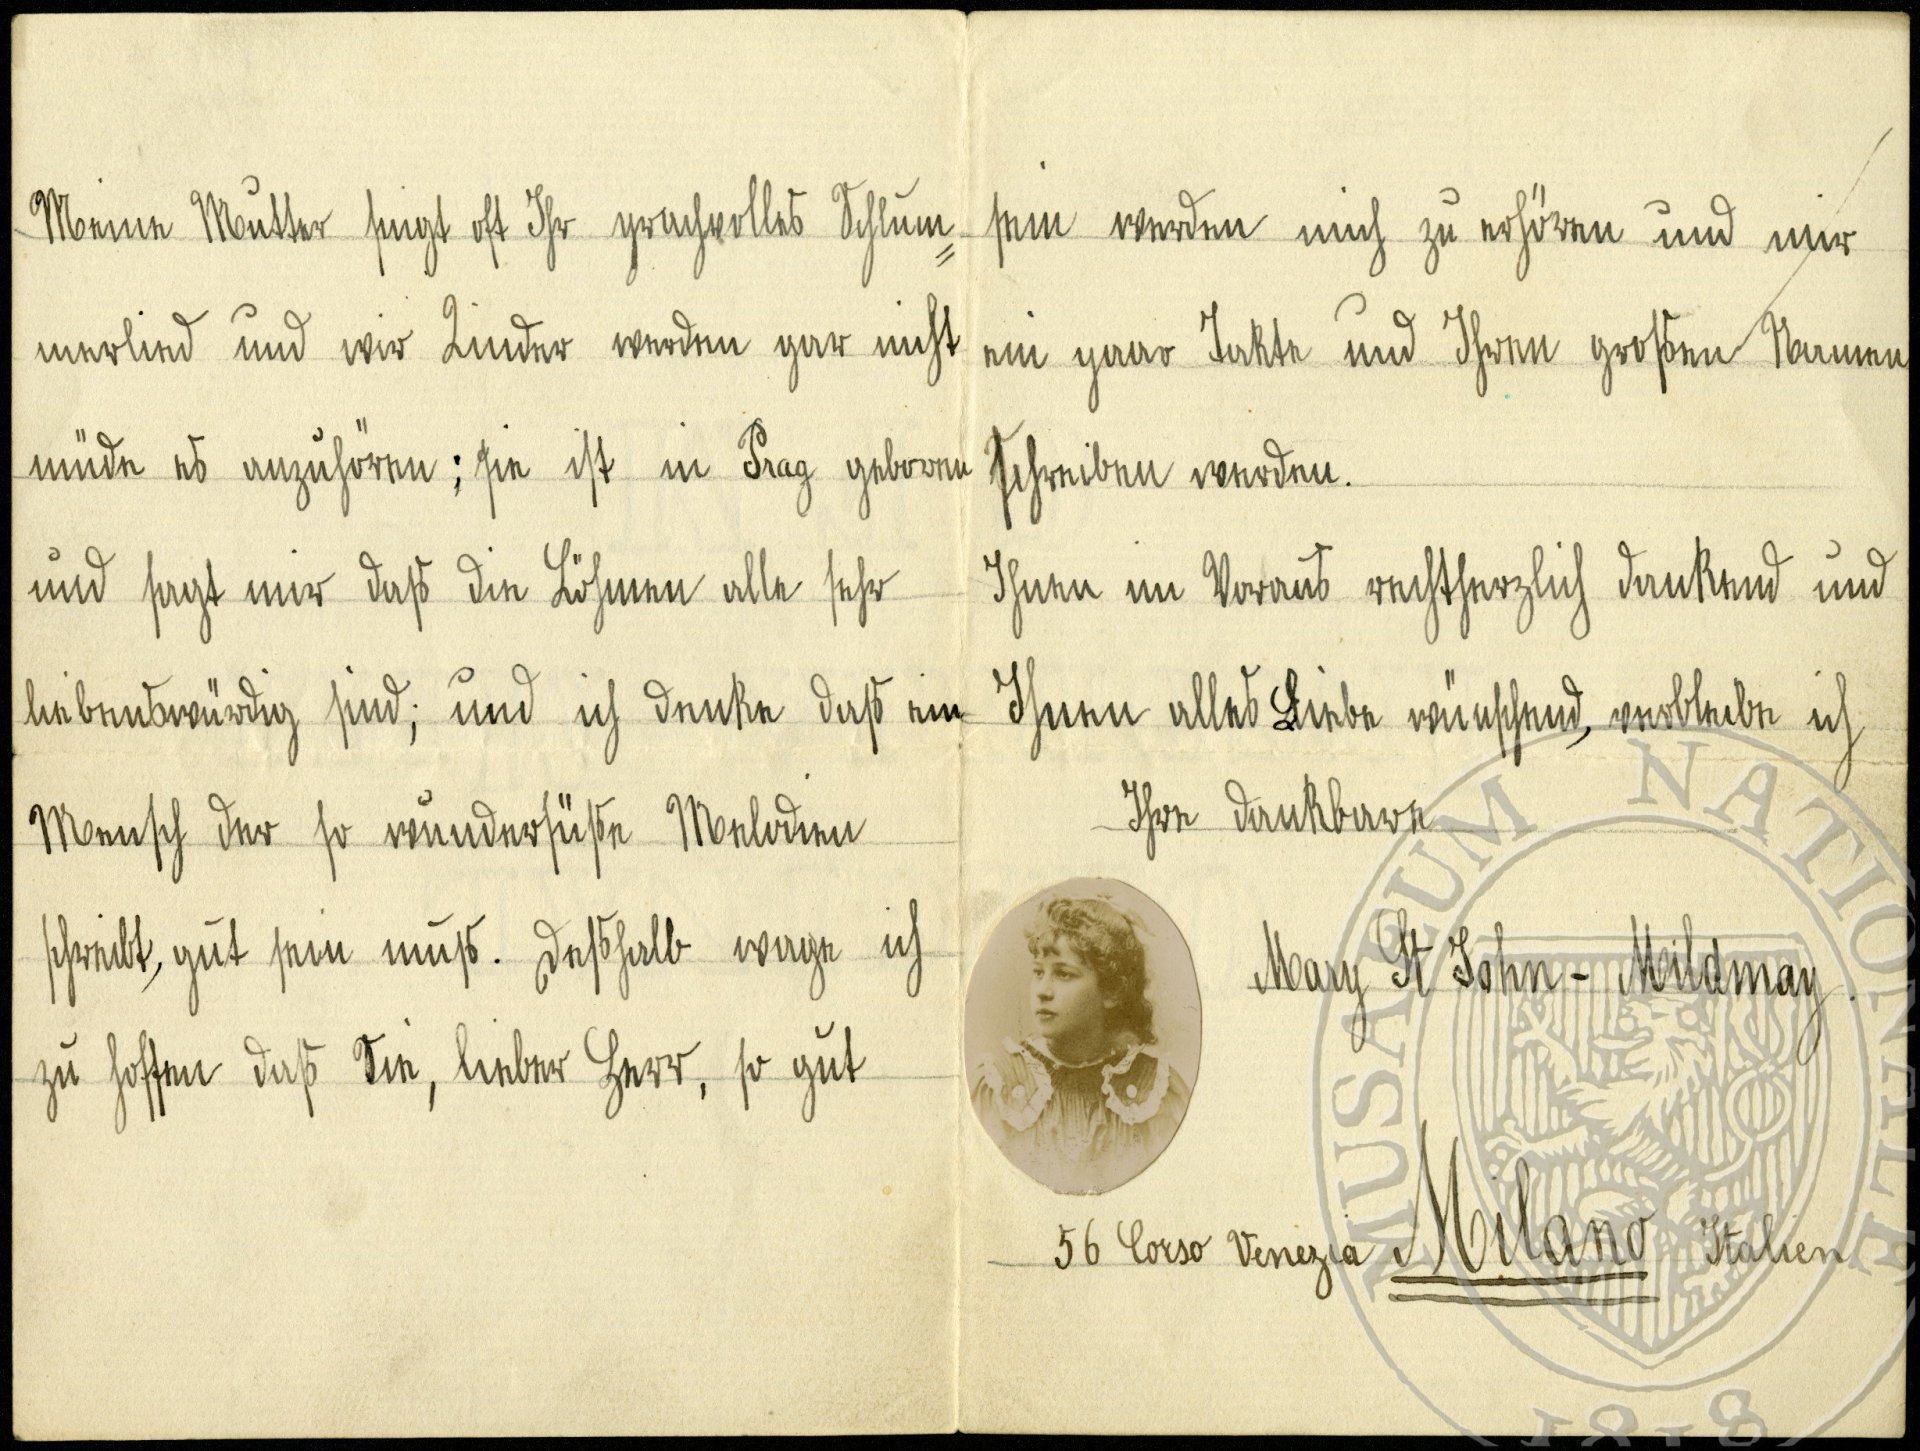 Meine Mutter singt oft Ihr prachvolles Schlum=
merlied und wir Kinder werden gar nicht
müde es anzuhören; sie ist in Prag geboren
und sagt mir daß die Böhmen alle sehr
liebenswürdig sind; und ich denke daß ein
Mensch der so wundersüße Melodien
schreibt, gut sein muß. Deßhalb wage ich
zu hoffen daß Sie, lieber Herr, so gut
sein werden mich zu erhören und mir
ein paar Takte und Ihren großen Namen
schreiben werden.
Ihnen im Voraus rechtherzlich dankend und
Ihnen alles Liebe wünschend, verbleibe ich
Ihre dankbare
Mary St John - Mildmay.
56 Corso Venezia Milano Italien
MUSAEUM NATIONALE
1818